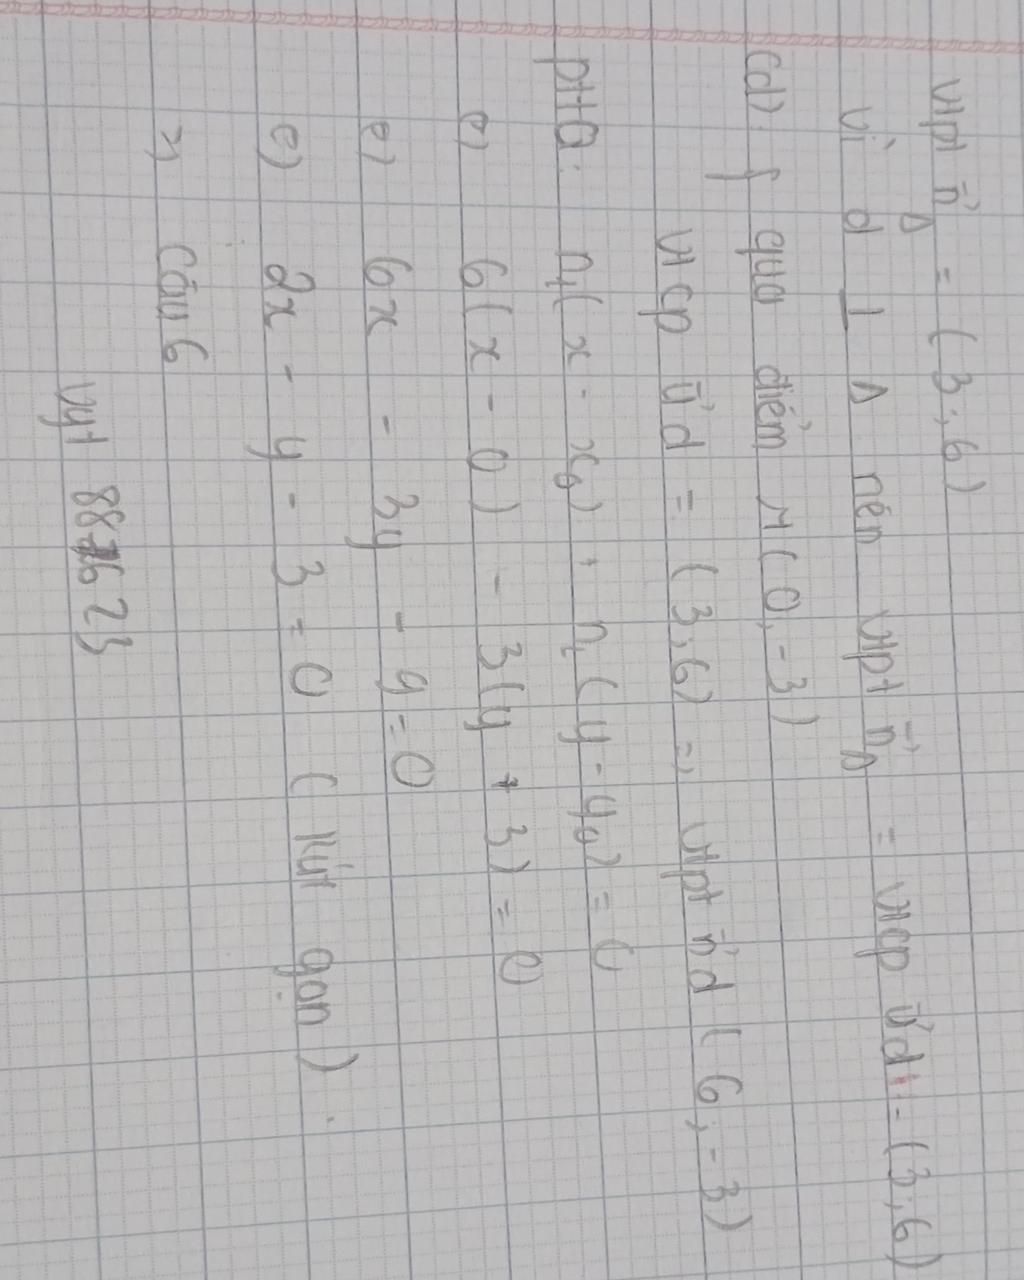 vtpt n⃗Δ = (3; 6)
Vì d ⊥ Δ nên vtpt n⃗Δ = vtcp u⃗d = (3; 6)
(d): { qua điểm M(0, -3)
vtcp u⃗d = (3, 6) => vtpt n⃗d (6; -3)
PTTQ: n₁(x - x₀) + n₂(y - y₀) = 0
e) 6(x - 0) - 3(y + 3) = 0
e) 6x - 3y - 9 = 0
e) 2x - y - 3 = 0 (rút gọn).
=> Câu 6
vyt 887623